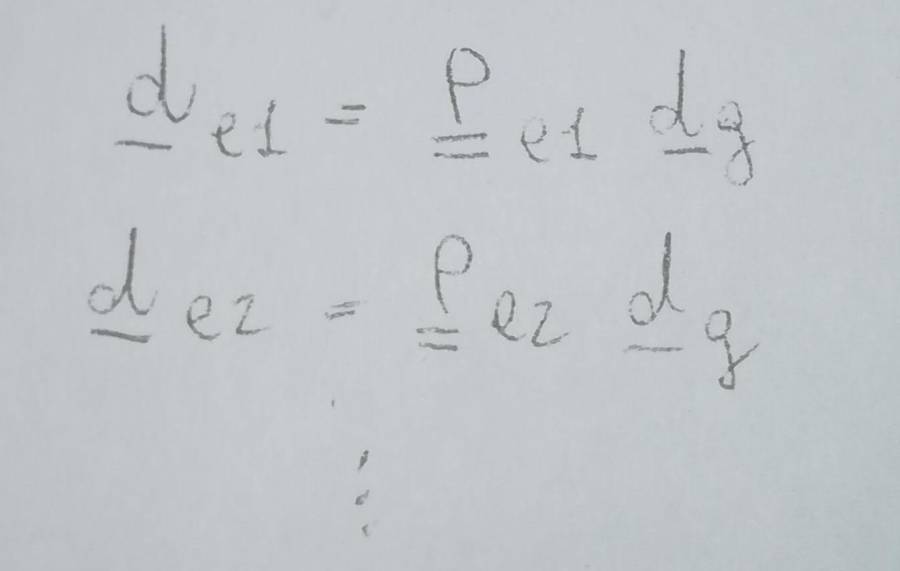 d̲ e1 = P̳ e1 d̲ g
d̲ e2 = P̳ e2 d̲ g
⋮